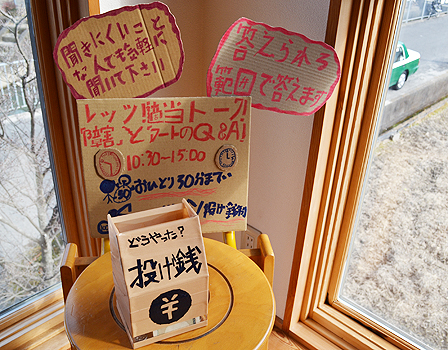 聞きにくいこと
なんでも気軽に
聞いて下さい
答えられる
範囲で答えます
レッツ!勉当トーク!
「障害」とアートのQ&A!
10:30~15:00
おひとり30分まで
投げ銭制
どうやった?
投げ銭
¥